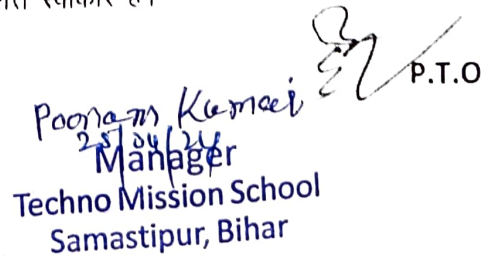 स्वीकार है।
P.T.O
Poonam Kumari
25/04/24
Manager
Techno Mission School
Samastipur, Bihar